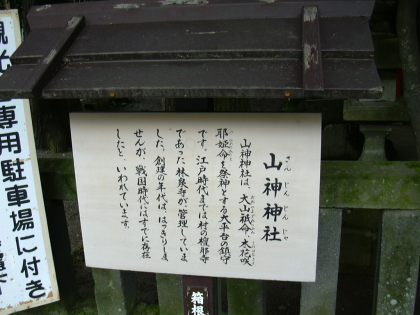 山神神社
さん じん じん じゃ
山神神社は、大山祇命、木花咲
耶姫命を祭神とする大平台の鎮守
です。江戸時代までは村の檀那寺
であった林泉寺が管理していま
した。創建の年代は、はっきりしま
せんが、戦国時代にはすでに存在
したと、いわれています。
専用駐車場に付き
箱根